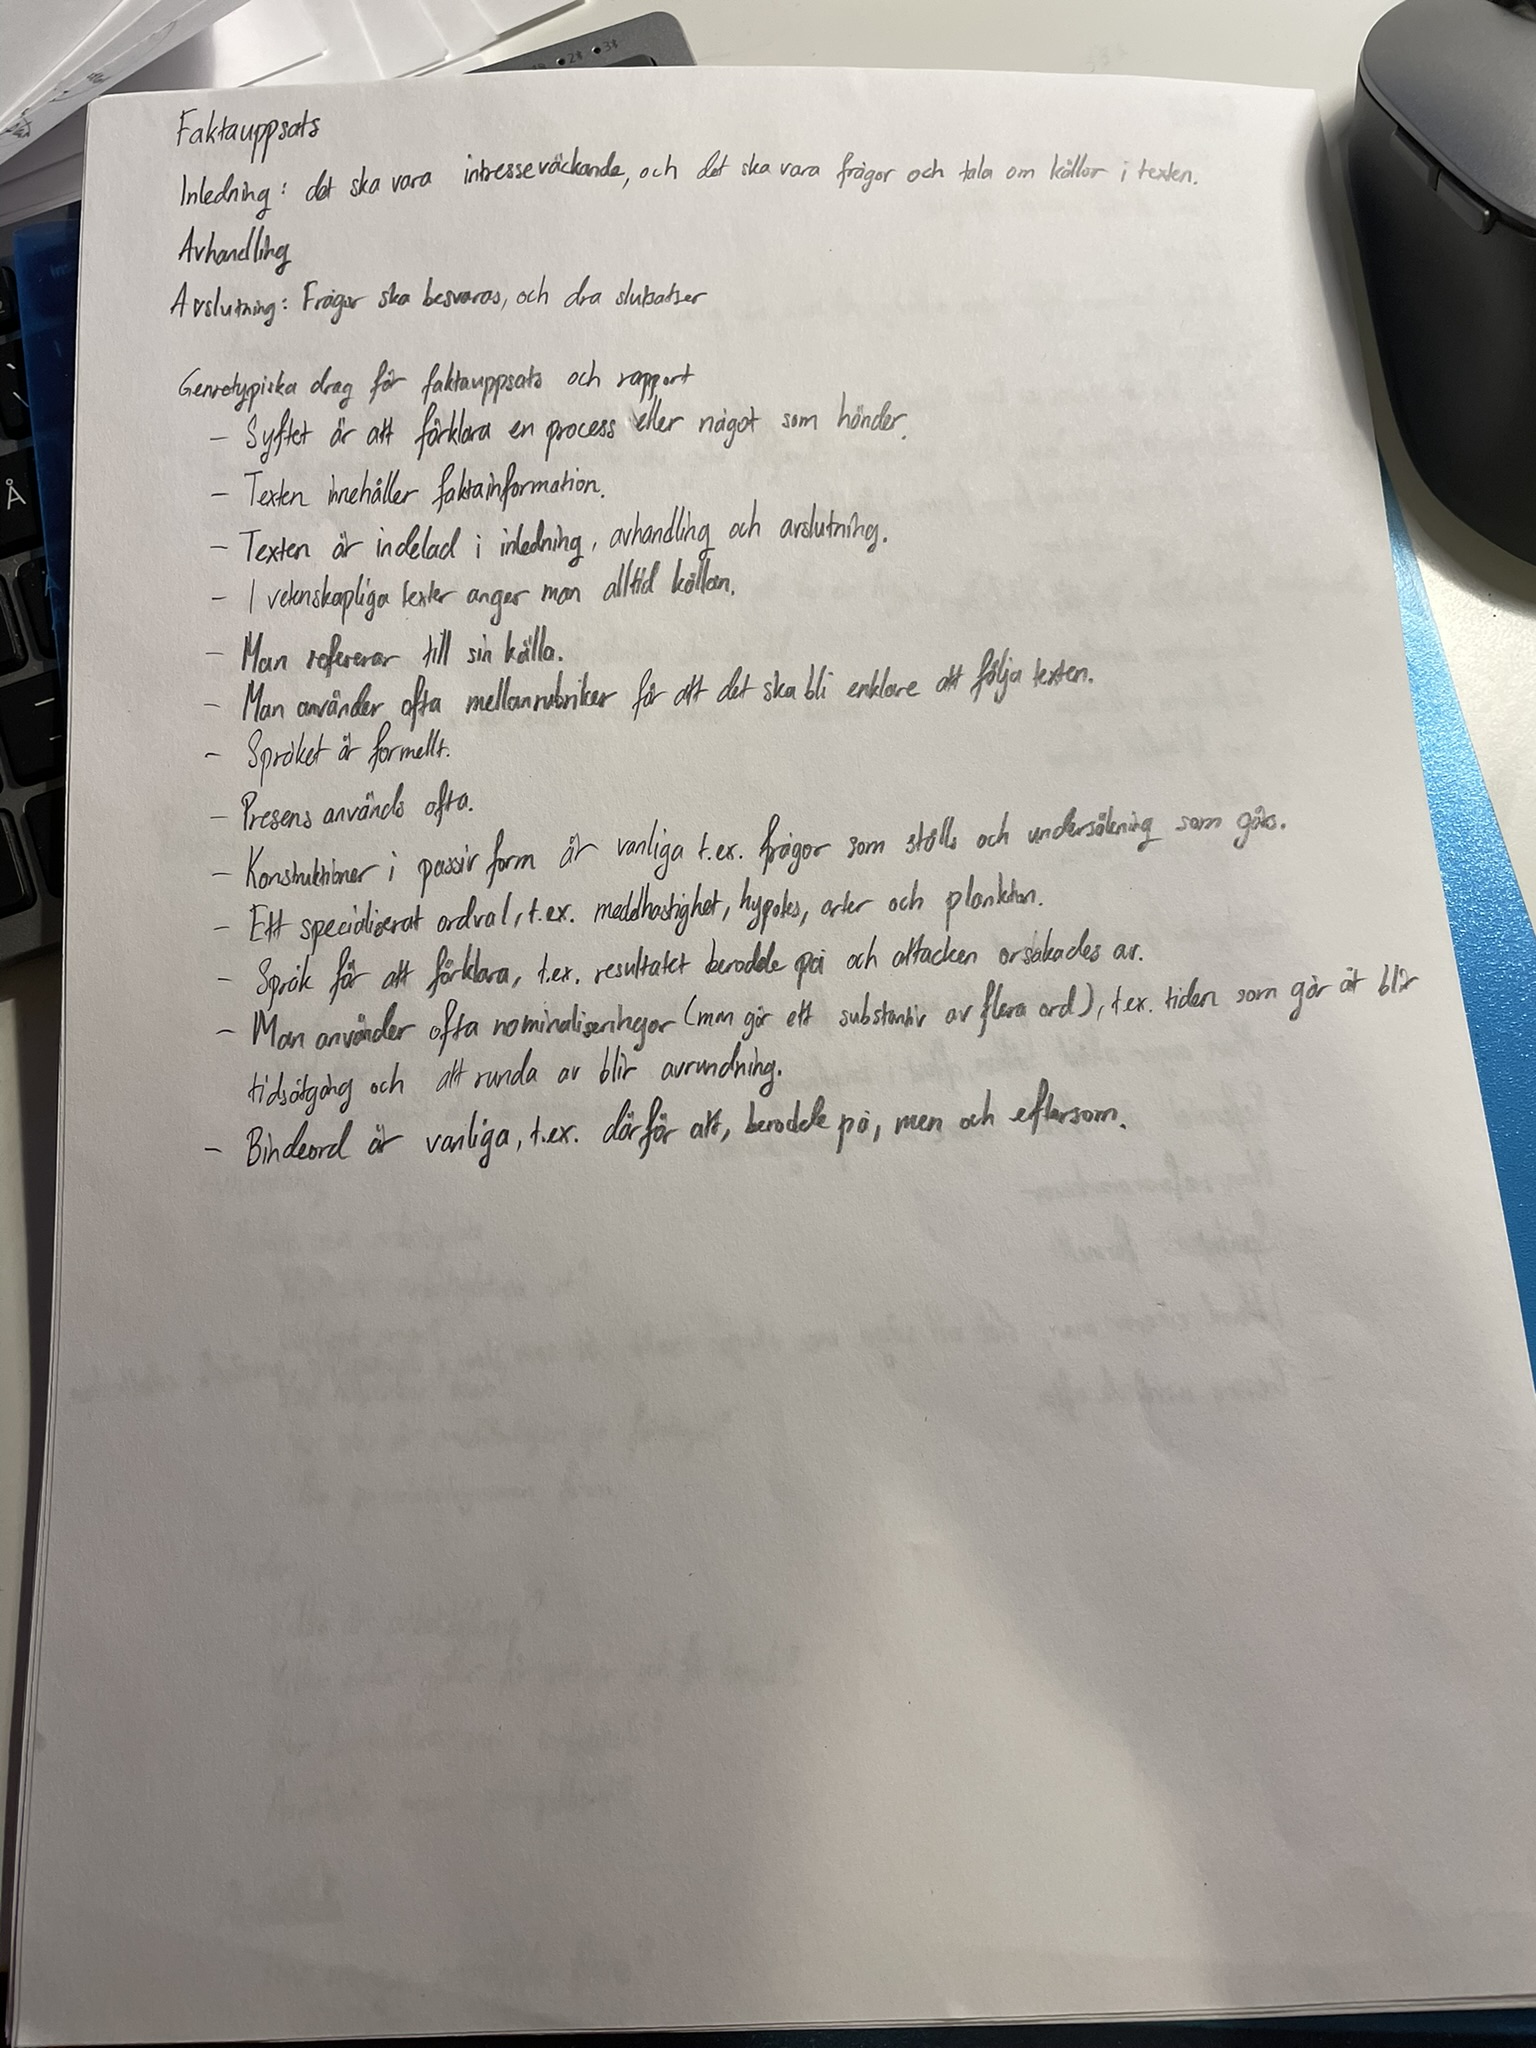 Faktauppsats
Inledning: det ska vara intresseväckande, och det ska vara frågor och tala om källor i texten.
Avhandling
Avslutning: Frågor ska besvaras, och dra slutsatser
Genretypiska drag för faktauppsats och rapport
- Syftet är att förklara en process eller något som händer.
- Texten innehåller faktainformation.
- Texten är indelad i inledning, avhandling och avslutning.
- I vetenskapliga texter anger man alltid källan.
- Man refererar till sin källa.
- Man använder ofta mellanrubriker för att det ska bli enklare att följa texten.
- Språket är formellt.
- Presens används ofta.
- Konstruktioner i passiv form är vanliga t.ex. frågor som ställs och undersökning som görs.
- Ett specialiserat ordval, t.ex. medelhastighet, hypotes, arter och plankton.
- Språk för att förklara, t.ex. resultatet berodde på och attacken orsakades av.
- Man använder ofta nominaliseringar (man gör ett substantiv av flera ord), t.ex. tiden som går åt blir
tidsåtgång och att runda av blir avrundning.
- Bindeord är vanliga, t.ex. därför att, berodde på, men och eftersom.